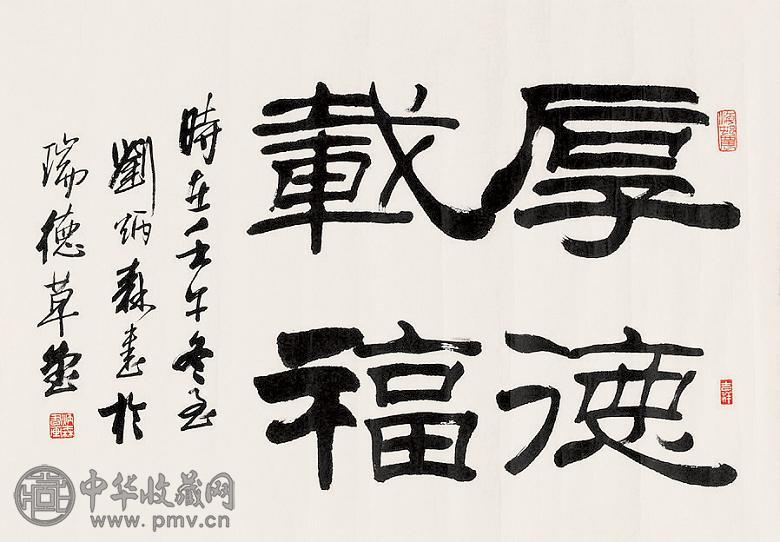 厚德
載福
時在壬午冬至
劉炳森書於
瑞德草堂
吉祥
中华收藏网
www.pmv.cn